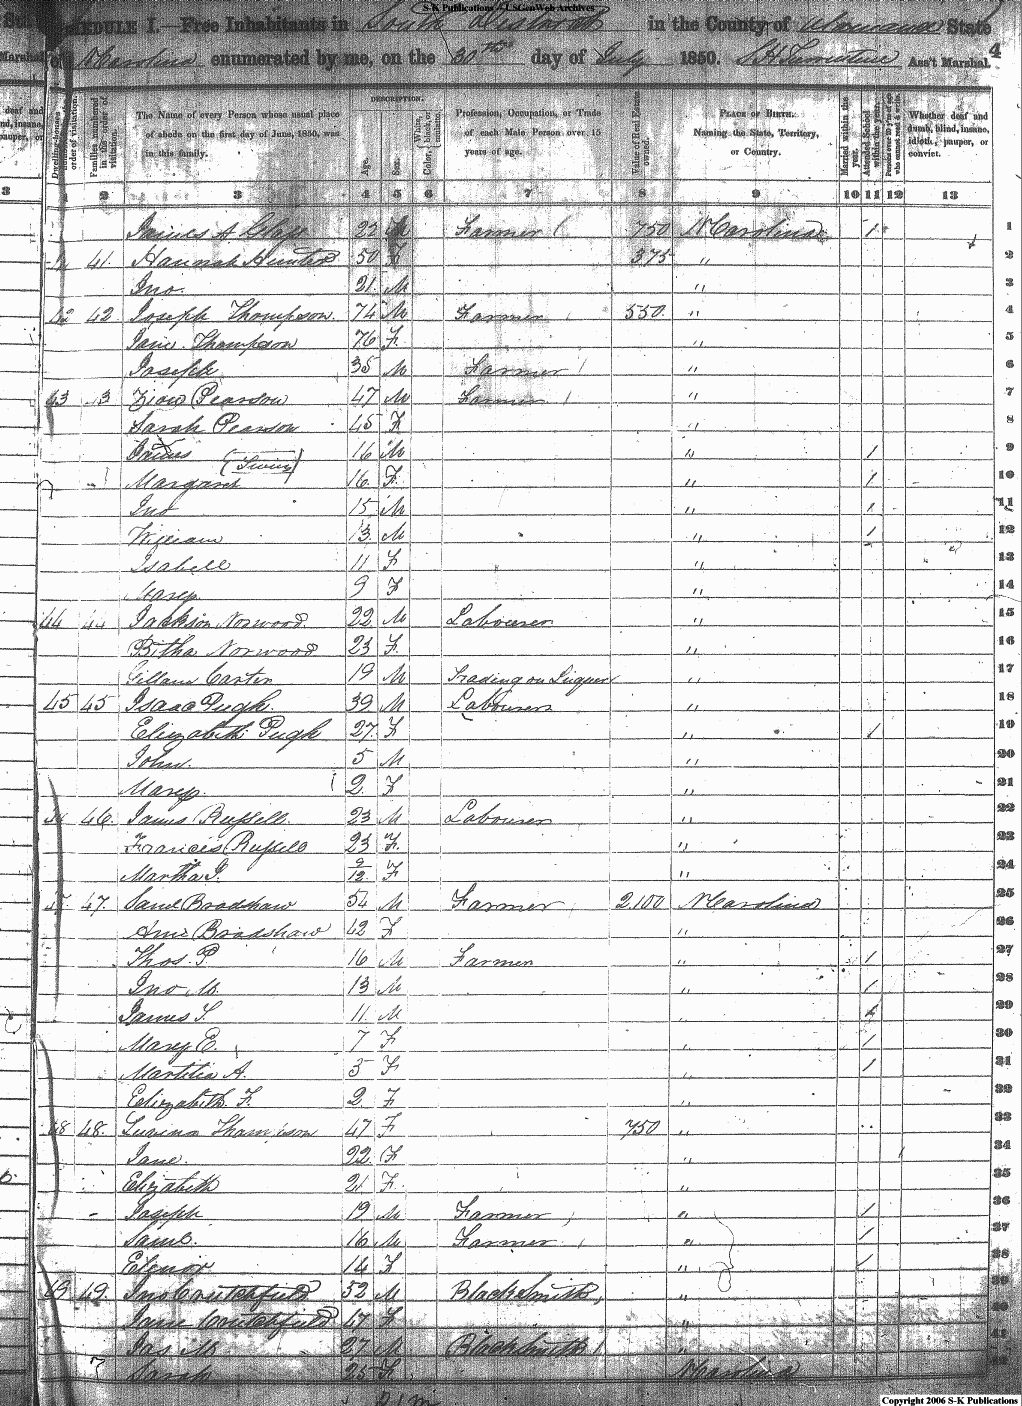 S-K Publications - USGenWeb Archives
SCHEDULE I.—Free Inhabitants in South District in the County of Alamance State
of N Carolina enumerated by me, on the 30th day of July 1850. Ass't Marshal.
4
DESCRIPTION.
Dwelling-houses numbered in the order of visitation.
Families numbered in the order of visitation.
The Name of every Person whose usual place of abode on the first day of June, 1850, was in this family.
Age.
Sex.
White, black, or mulatto.
Color,
Profession, Occupation, or Trade of each Male Person over 15 years of age.
Value of Real Estate owned.
PLACE OF BIRTH. Naming the State, Territory, or Country.
Married within the year.
Attended School within the year.
Persons over 20 y'rs of age who cannot read & write.
Whether deaf and dumb, blind, insane, idiotic, pauper, or convict.
1 2 3 4 5 6 7 8 9 10 11 12 13
James A 22 M Farmer 750 N Carolina 1 1
41 Hannah Hunter 50 F 375 " 2
Jno 21 M " 3
42 42 Joseph Thompson 74 M Farmer 550 " 4
Jane Thompson 76 F " 5
Joseph 35 M Farmer " 6
43 43 Pearson 47 M Farmer " 7
Sarah Pearson 45 F " 8
James 16 M " 1 9
(Twins)
Margaret 16 F " 1 10
Jno 15 M " 1 11
William 13 M " 1 12
Isabell 11 F " 13
Mary 9 F " 14
44 44 Jackson Norwood 22 M Labourer " 15
Bitha Norwood 23 F " 16
Carter 19 M Trading on Liquor " 17
45 45 Isaac Pugh 39 M Labourer " 18
Elizabeth Pugh 27 F " 1 19
John 5 M " 20
Mary 2 F " 21
46 James Russell 23 M Labourer " 22
Francis Russell 23 F " 23
Martha J. 9/12 F " 24
47 Saml Bradshaw 54 M Farmer 2100 N Carolina 25
Ann Bradshaw 42 F " 26
Thos. P. 16 M Farmer " 1 27
Jno M. 13 M " 1 28
James S. 11 M " 1 29
Mary E. 7 F " 1 30
Martitia A. 5 F " 1 31
Elizabeth F. 2 F " 32
48 48 Thompson 47 F 750 " 33
Jane 22 F " 34
Elizabeth 21 F " 35
Joseph 19 M Farmer " 1 36
Saml. 16 M Farmer " 1 37
Elenor 14 F " 1 38
49 49 Jno Crutchfield 52 M BlackSmith " 39
Jane Crutchfield 47 F " 40
Jas M 27 M BlackSmith " 41
Sarah 25 F N Carolina 42
Copyright 2006 S-K Publications